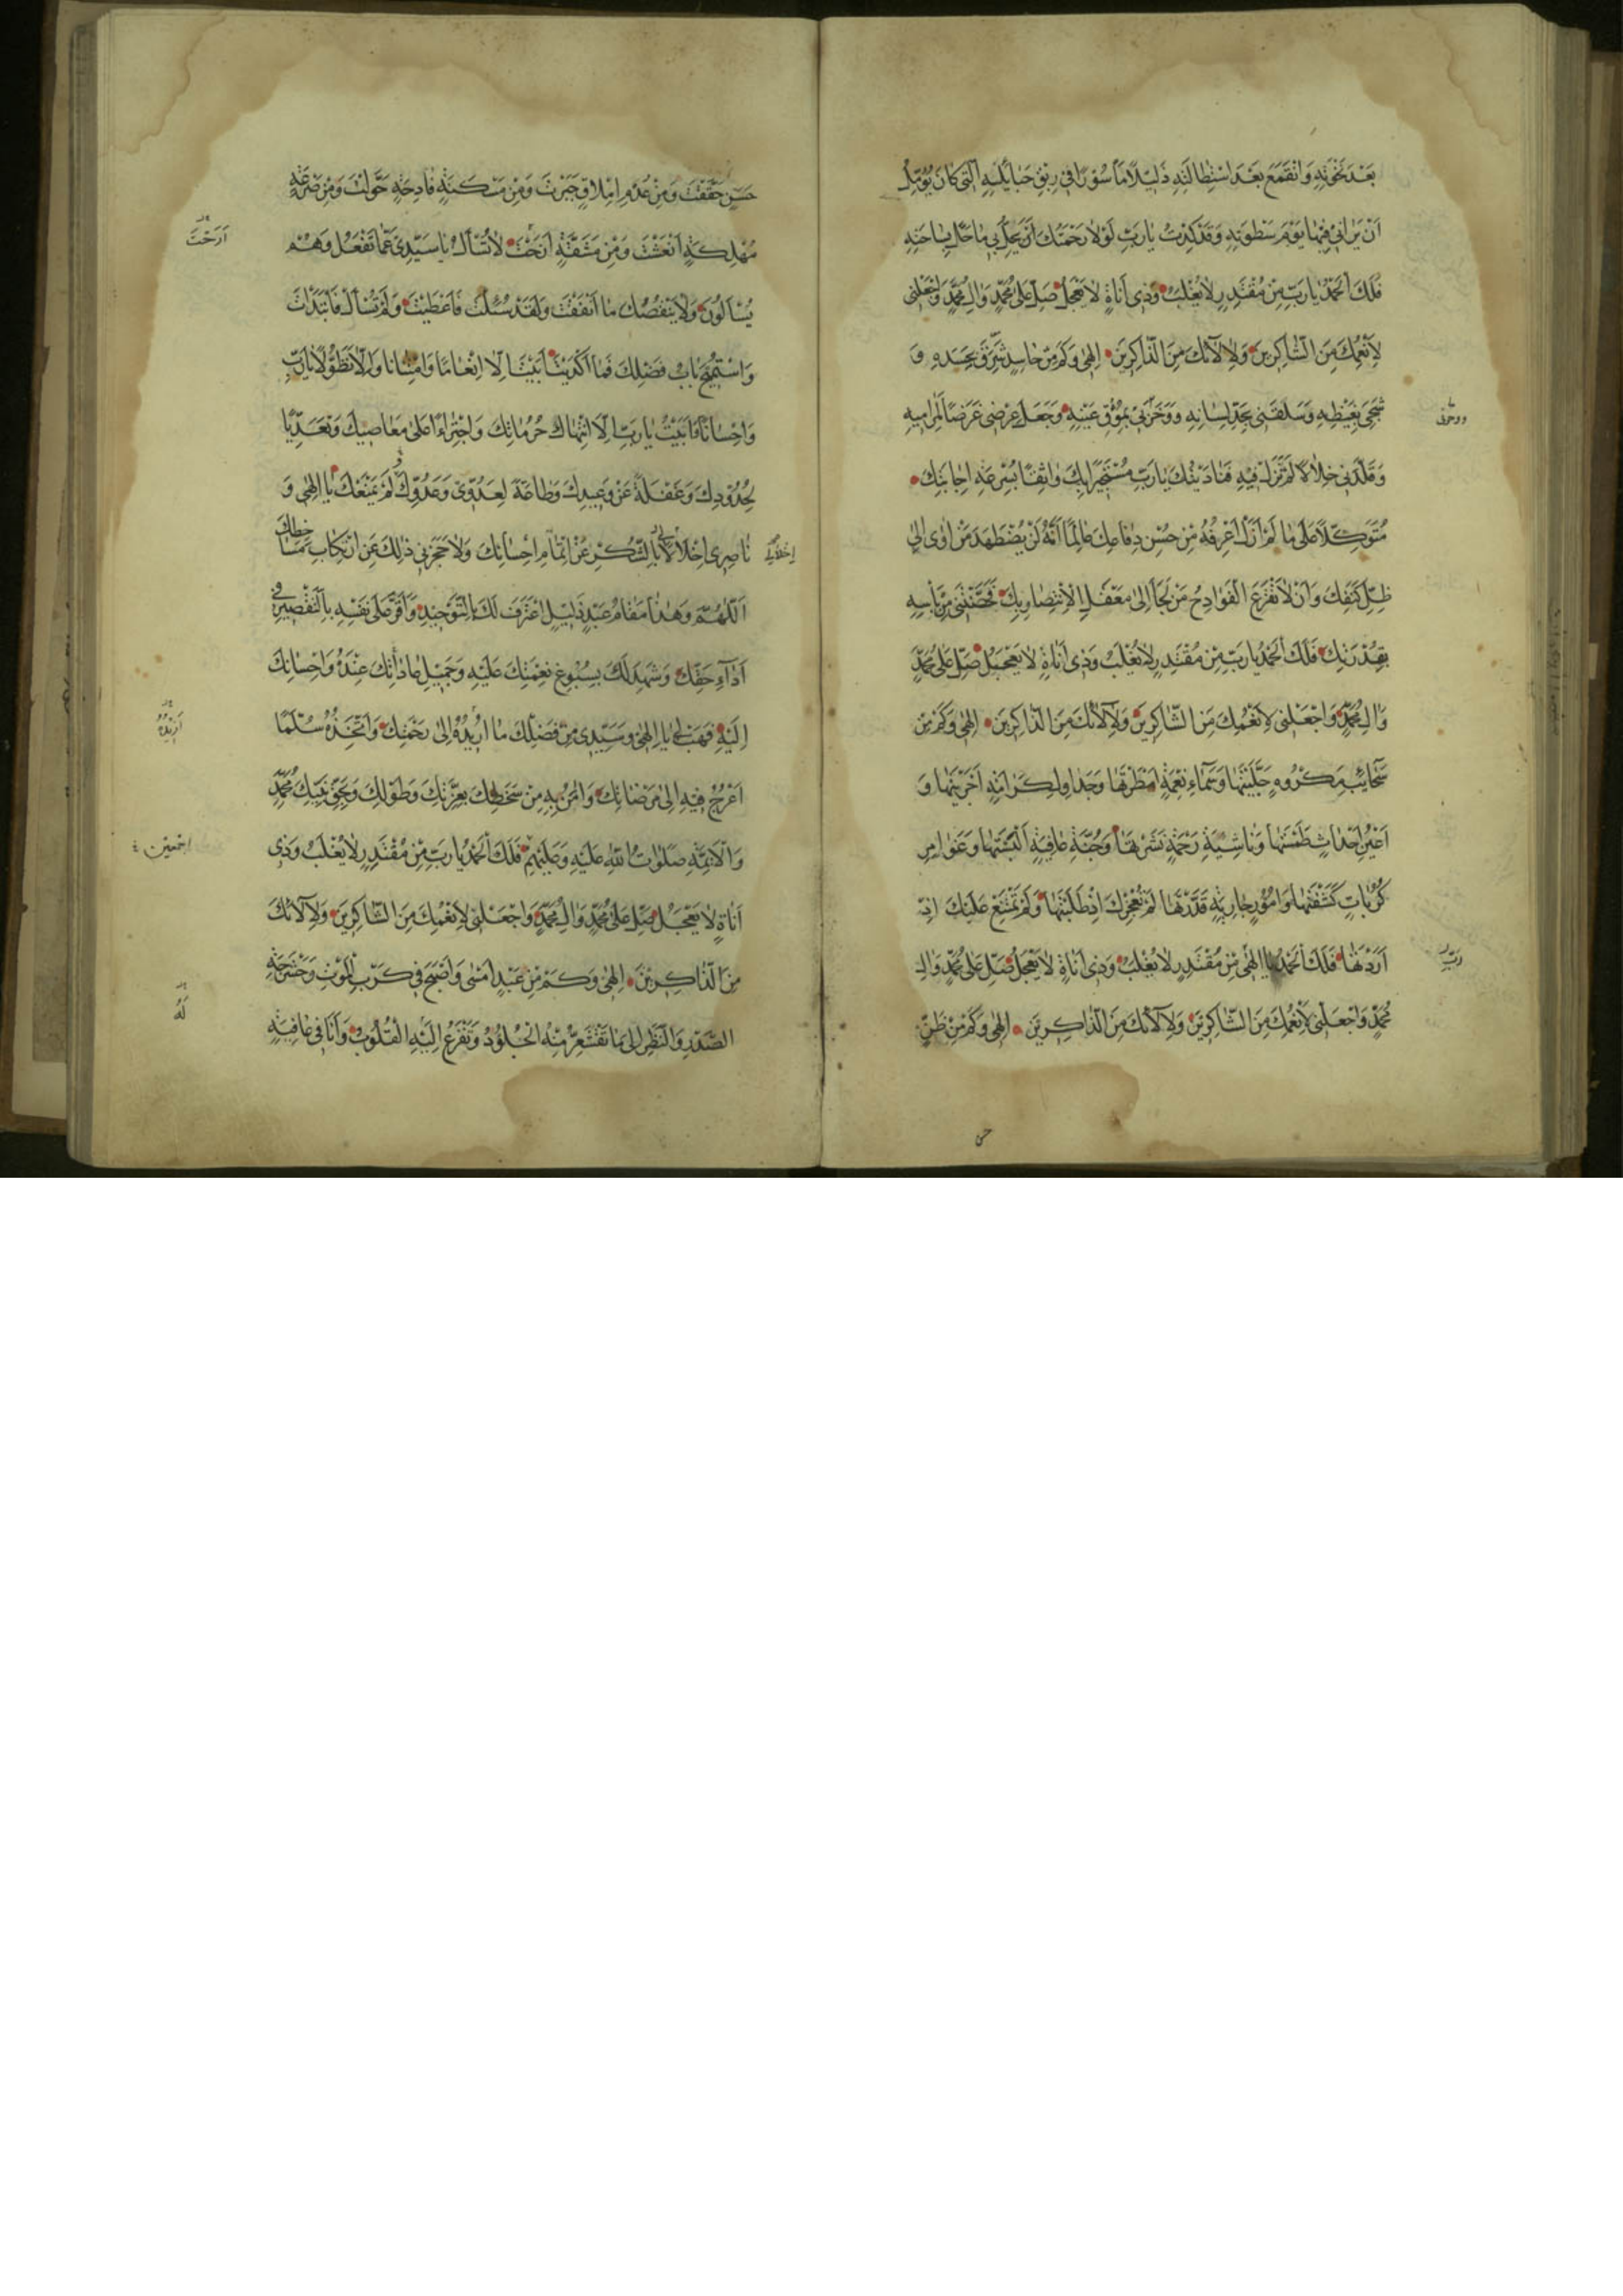 بَعْدَ نَخْوَتِهِ وَانْقَمَعَ بَعْدَ اسْتِطالَتِهِ ذَليلًا مَأْسُورًا في رِبَقِ حَبائِلِهِ الَّتي كانَ يُؤَمِّلُ
اَنْ يَراني فيها يَوْمَ سَطْوَتِهِ وَقَدْ كِدْتُ يارَبِّ لَوْلا رَحْمَتُكَ اَنْ يَحِلَّ بي ماحَلَّ بِساحَتِهِ
فَلَكَ الْحَمْدُ يارَبِّ مِنْ مُقْتَدِرٍ لايُغْلَبُ وَذي اَناةٍ لايَعْجَلُ صَلِّ عَلى مُحَمَّدٍ وَالِ مُحَمَّدٍ وَاجْعَلْني
لِاَنْعُمِكَ مِنَ الشّاكِرينَ وَلِالآئِكَ مِنَ الذّاكِرينَ اِلهي وَكَمْ مِنْ حاسِدٍ شَرِقَ بِحَسَدِهِ وَ
شَجِيَ بِغَيْظِهِ وَسَلَقَني بِحَدِّ لِسانِهِ وَوَخَزَني بِمُؤْقِ عَيْنِهِ وَجَعَلَ عِرْضي غَرَضًا لِمَراميهِ
ووحرنى
وَقَلَّدَني خِلالًا لَمْ تَزَلْ فيهِ فَنادَيْتُكَ يارَبِّ مُسْتَجيرًا بِكَ واثِقًا بِسُرْعَةِ اِجابَتِكَ
مُتَوَكِّلًا عَلى ما لَمْ اَزَلْ اَعْرِفُهُ مِنْ حُسْنِ دِفاعِكَ عالِمًا اَنَّهُ لَنْ يُضْطَهَدَ مَنْ اَوى اِلى
ظِلِّ كَنَفِكَ وَاَنْ لاتَقْرَعَ الْفَوادِحُ مَنْ لَجَأَ اِلى مَعْقِلِ الْاِنْتِصارِ بِكَ فَحَصَّنْتَني مِنْ بَأْسِهِ
بِقُدْرَتِكَ فَلَكَ الْحَمْدُ يارَبِّ مِنْ مُقْتَدِرٍ لايُغْلَبُ وَذي اَناةٍ لايَعْجَلُ صَلِّ عَلى مُحَمَّدٍ
وَالِ مُحَمَّدٍ وَاجْعَلْني لِاَنْعُمِكَ مِنَ الشّاكِرينَ وَلِالآئِكَ مِنَ الذّاكِرينَ اِلهي وَكَمْ مِنْ
سَحائِبِ مَكْرُوهٍ جَلَّيْتَها وَسَمآءِ نِعْمَةٍ اَمْطَرْتَها وَجَداوِلِ كَرامَةٍ اَجْرَيْتَها وَ
اَعْيُنِ اَحْداثٍ طَمَسْتَها وَناشِئَةِ رَحْمَةٍ نَشَرْتَها وَجُنَّةِ عافِيَةٍ اَلْبَسْتَها وَغَوامِرِ
كُرُباتٍ كَشَفْتَها وَاُمُورٍ جارِيَةٍ قَدَّرْتَها لَمْ تُعْجِزْكَ اِذْ طَلَبْتَها وَلَمْ تَمْتَنِعْ عَلَيْكَ اِذْ
اَرَدْتَها فَلَكَ الْحَمْدُ يا اِلهي مِنْ مُقْتَدِرٍ لايُغْلَبُ وَذي اَناةٍ لايَعْجَلُ صَلِّ عَلى مُحَمَّدٍ وَالِ
مُحَمَّدٍ وَاجْعَلْني لِاَنْعُمِكَ مِنَ الشّاكِرينَ وَلِالآئِكَ مِنَ الذّاكِرينَ اِلهي وَكَمْ مِنْ ظَنٍّ
حسن
حَسَنٍ حَقَّقْتَ وَمِنْ عُدْمِ اِمْلاقٍ جَبَرْتَ وَمِنْ مَسْكَنَةٍ فادِحَةٍ حَوَّلْتَ وَمِنْ صَرْعَةٍ
مُهْلِكَةٍ اَنْعَشْتَ وَمِنْ مَشَقَّةٍ اَرَحْتَ لاتُسْأَلُ يا سَيِّدي عَمّا تَفْعَلُ وَهُمْ
اَرَحْتَ
يُسْأَلُونَ وَلايَنْقُصُكَ ما اَنْفَقْتَ وَلَقَدْ سُئِلْتَ فَاَعْطَيْتَ وَلَمْ تُسْأَلْ فَابْتَدَأْتَ
وَاسْتُميحَ بابُ فَضْلِكَ فَما اَكْدَيْتَ اَبَيْتَ اِلّا اِنْعامًا وَامْتِنانًا وَاِلّا تَطَوُّلًا يارَبِّ
وَاِحْسانًا وَاَبَيْتُ يارَبِّ اِلَّا انْتِهاكَ حُرُماتِكَ وَاجْتِراءً عَلى مَعاصيكَ وَتَعَدِّيًا
لِحُدُودِكَ وَغَفْلَةً عَنْ وَعيدِكَ وَطاعَةً لِعَدُوّي وَعَدُوِّكَ لَمْ يَمْنَعْكَ يا اِلهي وَ
ناصِري اِخْلالي بِالشُّكْرِ عَنْ اِتْمامِ اِحْسانِكَ وَلاحَجَزَني ذلِكَ عَنِ ارْتِكابِ مَساخِطِكَ
اِخْلالي
اَللّهُمَّ وَهذا مَقامُ عَبْدٍ ذَليلٍ اعْتَرَفَ لَكَ بِالتَّوْحيدِ وَاَقَرَّ عَلى نَفْسِهِ بِالتَّقْصيرِ في
اَدآءِ حَقِّكَ وَشَهِدَ لَكَ بِسُبُوغِ نِعْمَتِكَ عَلَيْهِ وَجَميلِ عاداتِكَ عِنْدَهُ وَاِحْسانِكَ
اِلَيْهِ فَهَبْ لي يا اِلهي وَسَيِّدي مِنْ فَضْلِكَ ما اُريدُهُ اِلى رَحْمَتِكَ وَاَتَّخِذُهُ سُلَّمًا
اُريدُهُ
اَعْرُجُ فيهِ اِلى مَرْضاتِكَ وَامَنُ بِهِ مِنْ سَخَطِكَ بِعِزَّتِكَ وَطَوْلِكَ وَبِحَقِّ نَبِيِّكَ مُحَمَّدٍ
وَالْاَئِمَّةِ صَلَواتُ اللهِ عَلَيْهِ وَعَلَيْهِمْ فَلَكَ الْحَمْدُ يارَبِّ مِنْ مُقْتَدِرٍ لايُغْلَبُ وَذي
اجمعين
اَناةٍ لايَعْجَلُ صَلِّ عَلى مُحَمَّدٍ وَالِ مُحَمَّدٍ وَاجْعَلْني لِاَنْعُمِكَ مِنَ الشّاكِرينَ وَلِالآئِكَ
مِنَ الذّاكِرينَ اِلهي وَكَمْ مِنْ عَبْدٍ اَمْسى وَاَصْبَحَ في كَرْبِ الْمَوْتِ وَحَشْرَجَةِ
الصَّدْرِ وَالنَّظَرِ اِلى ما تَقْشَعِرُّ مِنْهُ الْجُلُودُ وَتَفْزَعُ اِلَيْهِ الْقُلُوبُ وَاَنَا في عافِيَةٍ
لَهُ